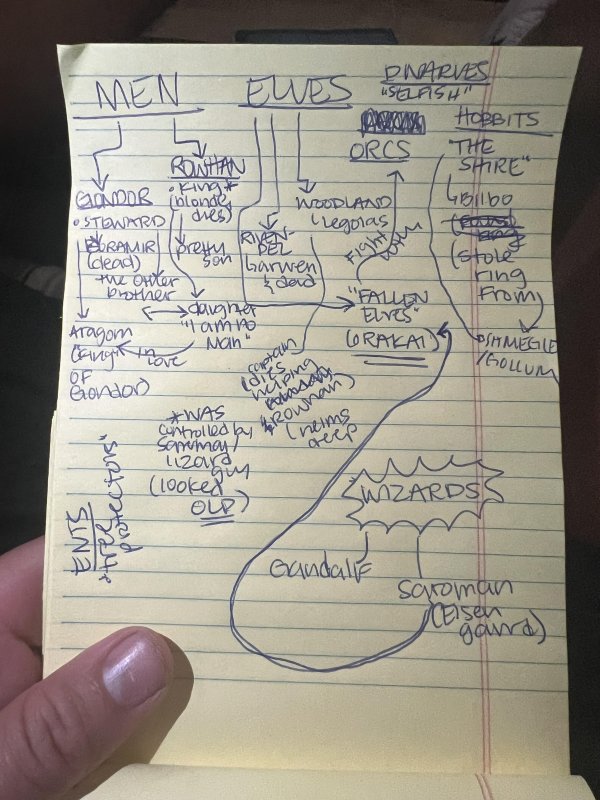 MEN
ELVES
DWARVES
"SELFISH"
ORCS
HOBBITS
"THE
SHIRE"
Bilbo
(stole
ring
From
SHMEGLE
/GOLLUM
GONDOR
• STEWARD
(dead)
the other
brother
Aragorn
(king
OF
Gondor)
in
love
ROWHAN
• King *
(blonde,
dies)
pretty
son
daughter
"I am no
man"
RIVEN-
DEL
& dad
WOODLAND
Legolas
Fight
both
"FALLEN
ELVES"
(ORAKAI)
captain
(dies
helping
Rowhan)
(helms
deep
*WAS
controlled by
Saroman
lizard
guy
(looked
OLD)
ENTS
"tree
protectors"
WIZARDS
Gandalf
Saroman
(Eisen
gaurd)